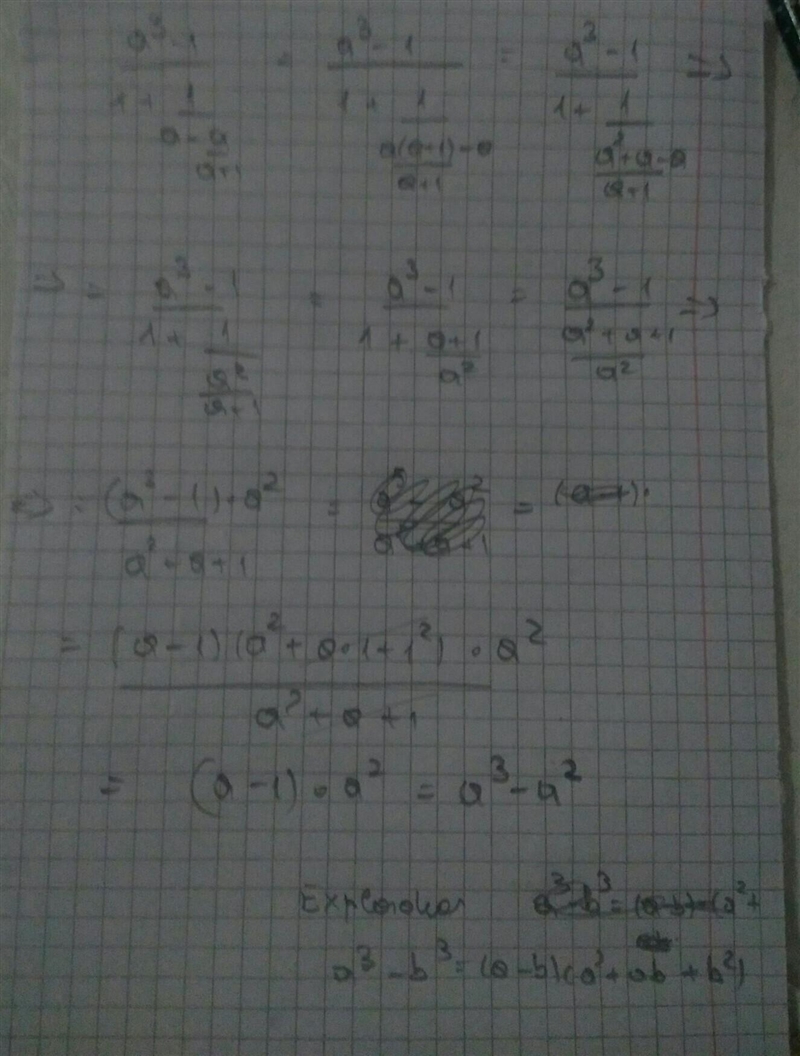 a³-1 / (1 + 1 / (a - a / (a+1))) = a³-1 / (1 + 1 / ((a(a+1)-a) / (a+1))) = a³-1 / (1 + 1 / ((a²+a-a) / (a+1))) =>
=> = a³-1 / (1 + 1 / (a² / (a+1))) = a³-1 / (1 + (a+1) / a²) = a³-1 / ((a²+a+1) / a²) =>
=> = (a³-1)·a² / (a²+a+1) = = (a-1)·
= (a-1)(a²+a·1+1²)·a² / (a²+a+1)
= (a-1)·a² = a³-a²
a³-b³=(a-b)(a²+
a³-b³=(a-b)(a²+ab+b²)